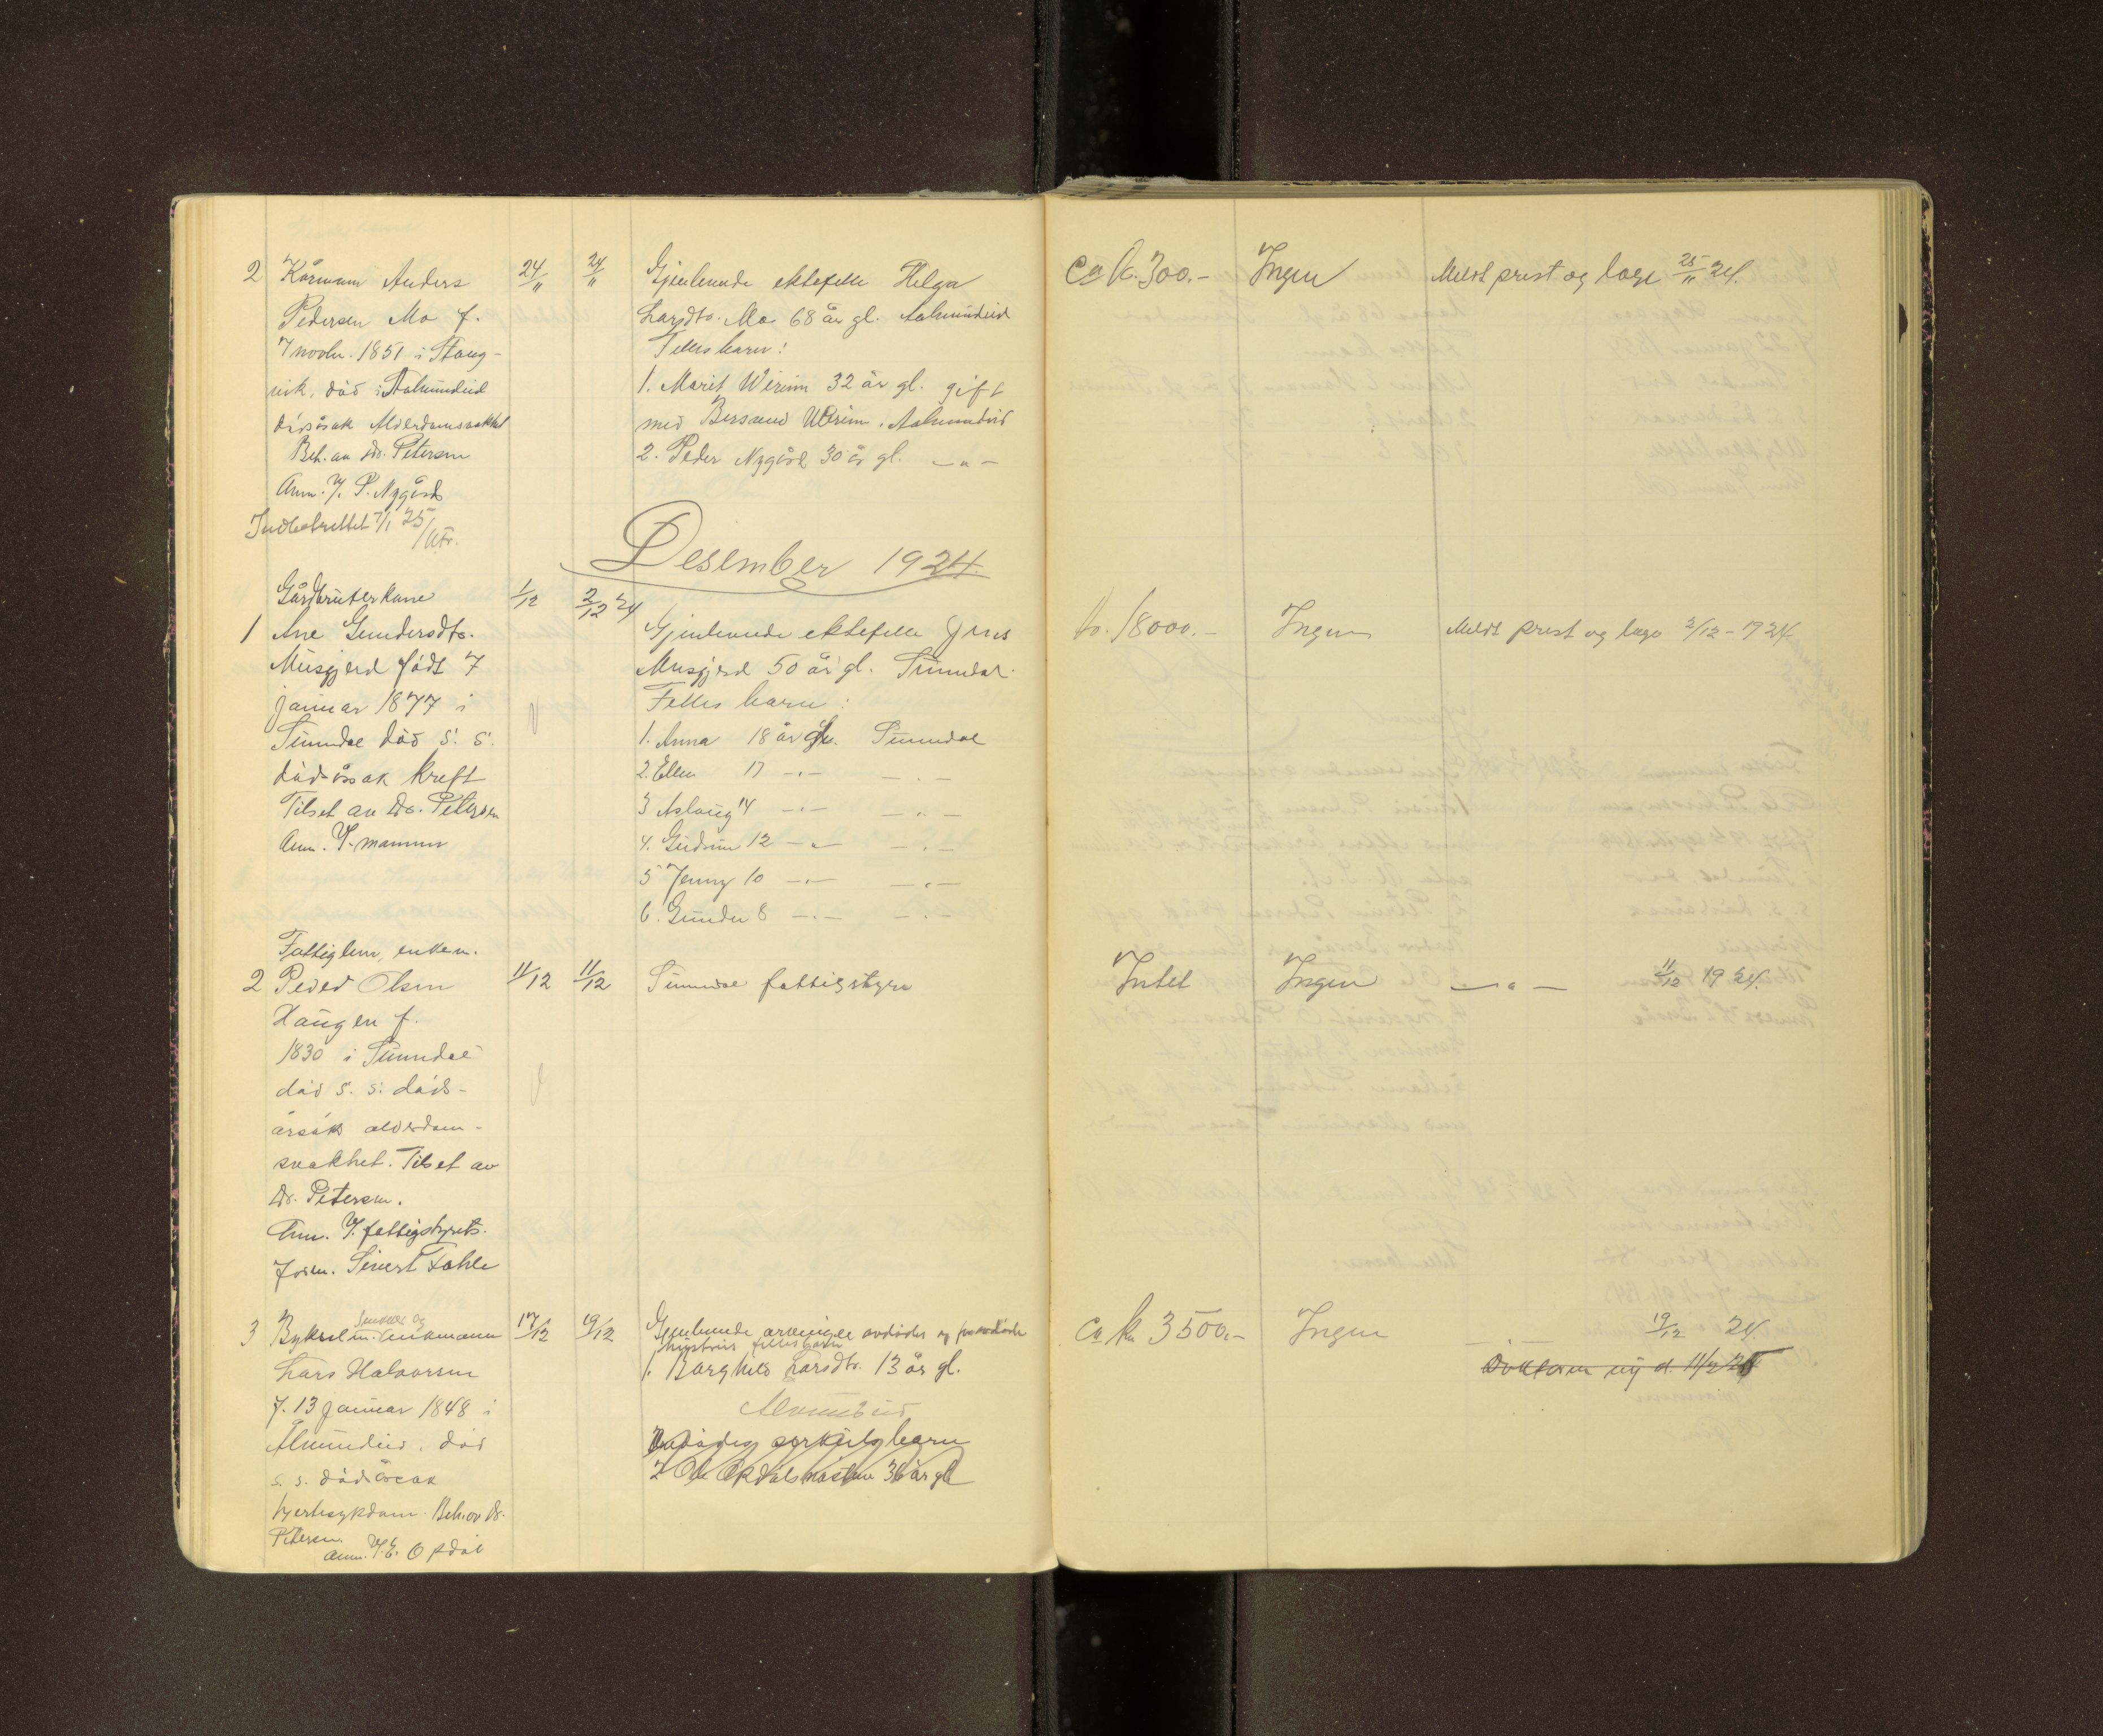 2 Kårmann Anders 24/11 24/11 Gjenlevende ektefelle Helga ca kr. 300.- Ingen Meldt prest og lage 25/11 24.
Pedersen Mo f. Larsdtr. Mo 68 år gl. Aalvundeid
7 novbr. 1851 i Stang- Felles barn:
vik, død i Aalvundeid 1. Marit Wirum 32 år gl. gift
dødsårsak Alderdomssvakhet med Bersvend Wirum, Aalvundeid
Beh. av Dr. Petersen 2. Peder Nygård 30 år gl. -"-
Anm. P. Nygård
Indberettet 7/1 25
Desember 1924.
Gårdbrukerkone 1/12 2/12 24
1 Ane Gundersdtr. Gjenlevende ektefelle Jens kr. 18000.- Ingen Meldt prest og lage 2/12-1924
Musgjerd født 7 Musgjerd 50 år gl. Sunndal.
januar 1877 i Felles barn:
Sunndal død s. s. 1. Anna 18 år gl. Sunndal
dødsårsak kreft 2. Ellen 17 -"- -"-
Tilset av Dr. Petersen 3 Aslaug 14 -"- -"-
Anm. mannen 4. Gudrun 12 -"- -"-
5 Jenny 10 -"- -"-
6. Gunder 8 -"- -"-
Fattiglem, enkem.
2 Peder Olsen 11/12 11/12 Sunndal fattigstyre Intet Ingen -"- 11/12 1924.
Haugen f.
1830 i Sunndal
død s. s. døds-
årsak alderdom-
svakhet. Tilset av
Dr. Petersen.
Anm. fattigstyrets
form. Sivert Fahle
3 Bykselm. enkemann 17/12 19/12 Gjenlevende arvinger avdødes og ca kr 3500.- Ingen 19/12 24.
hustrus felles barn
Lars Halvorsen 1. Borghild Larsdtr. 13 år gl. Doktoren
f. 13 januar 1848 i Alvundeid
Ålvundeid, død Avdødes særkulsbarn
s. s. dødsårsak 2 Ole Opdalsnasten 36 år gl
hjertesykdom. Beh. av Dr.
Petersen.
Anm. Opdal